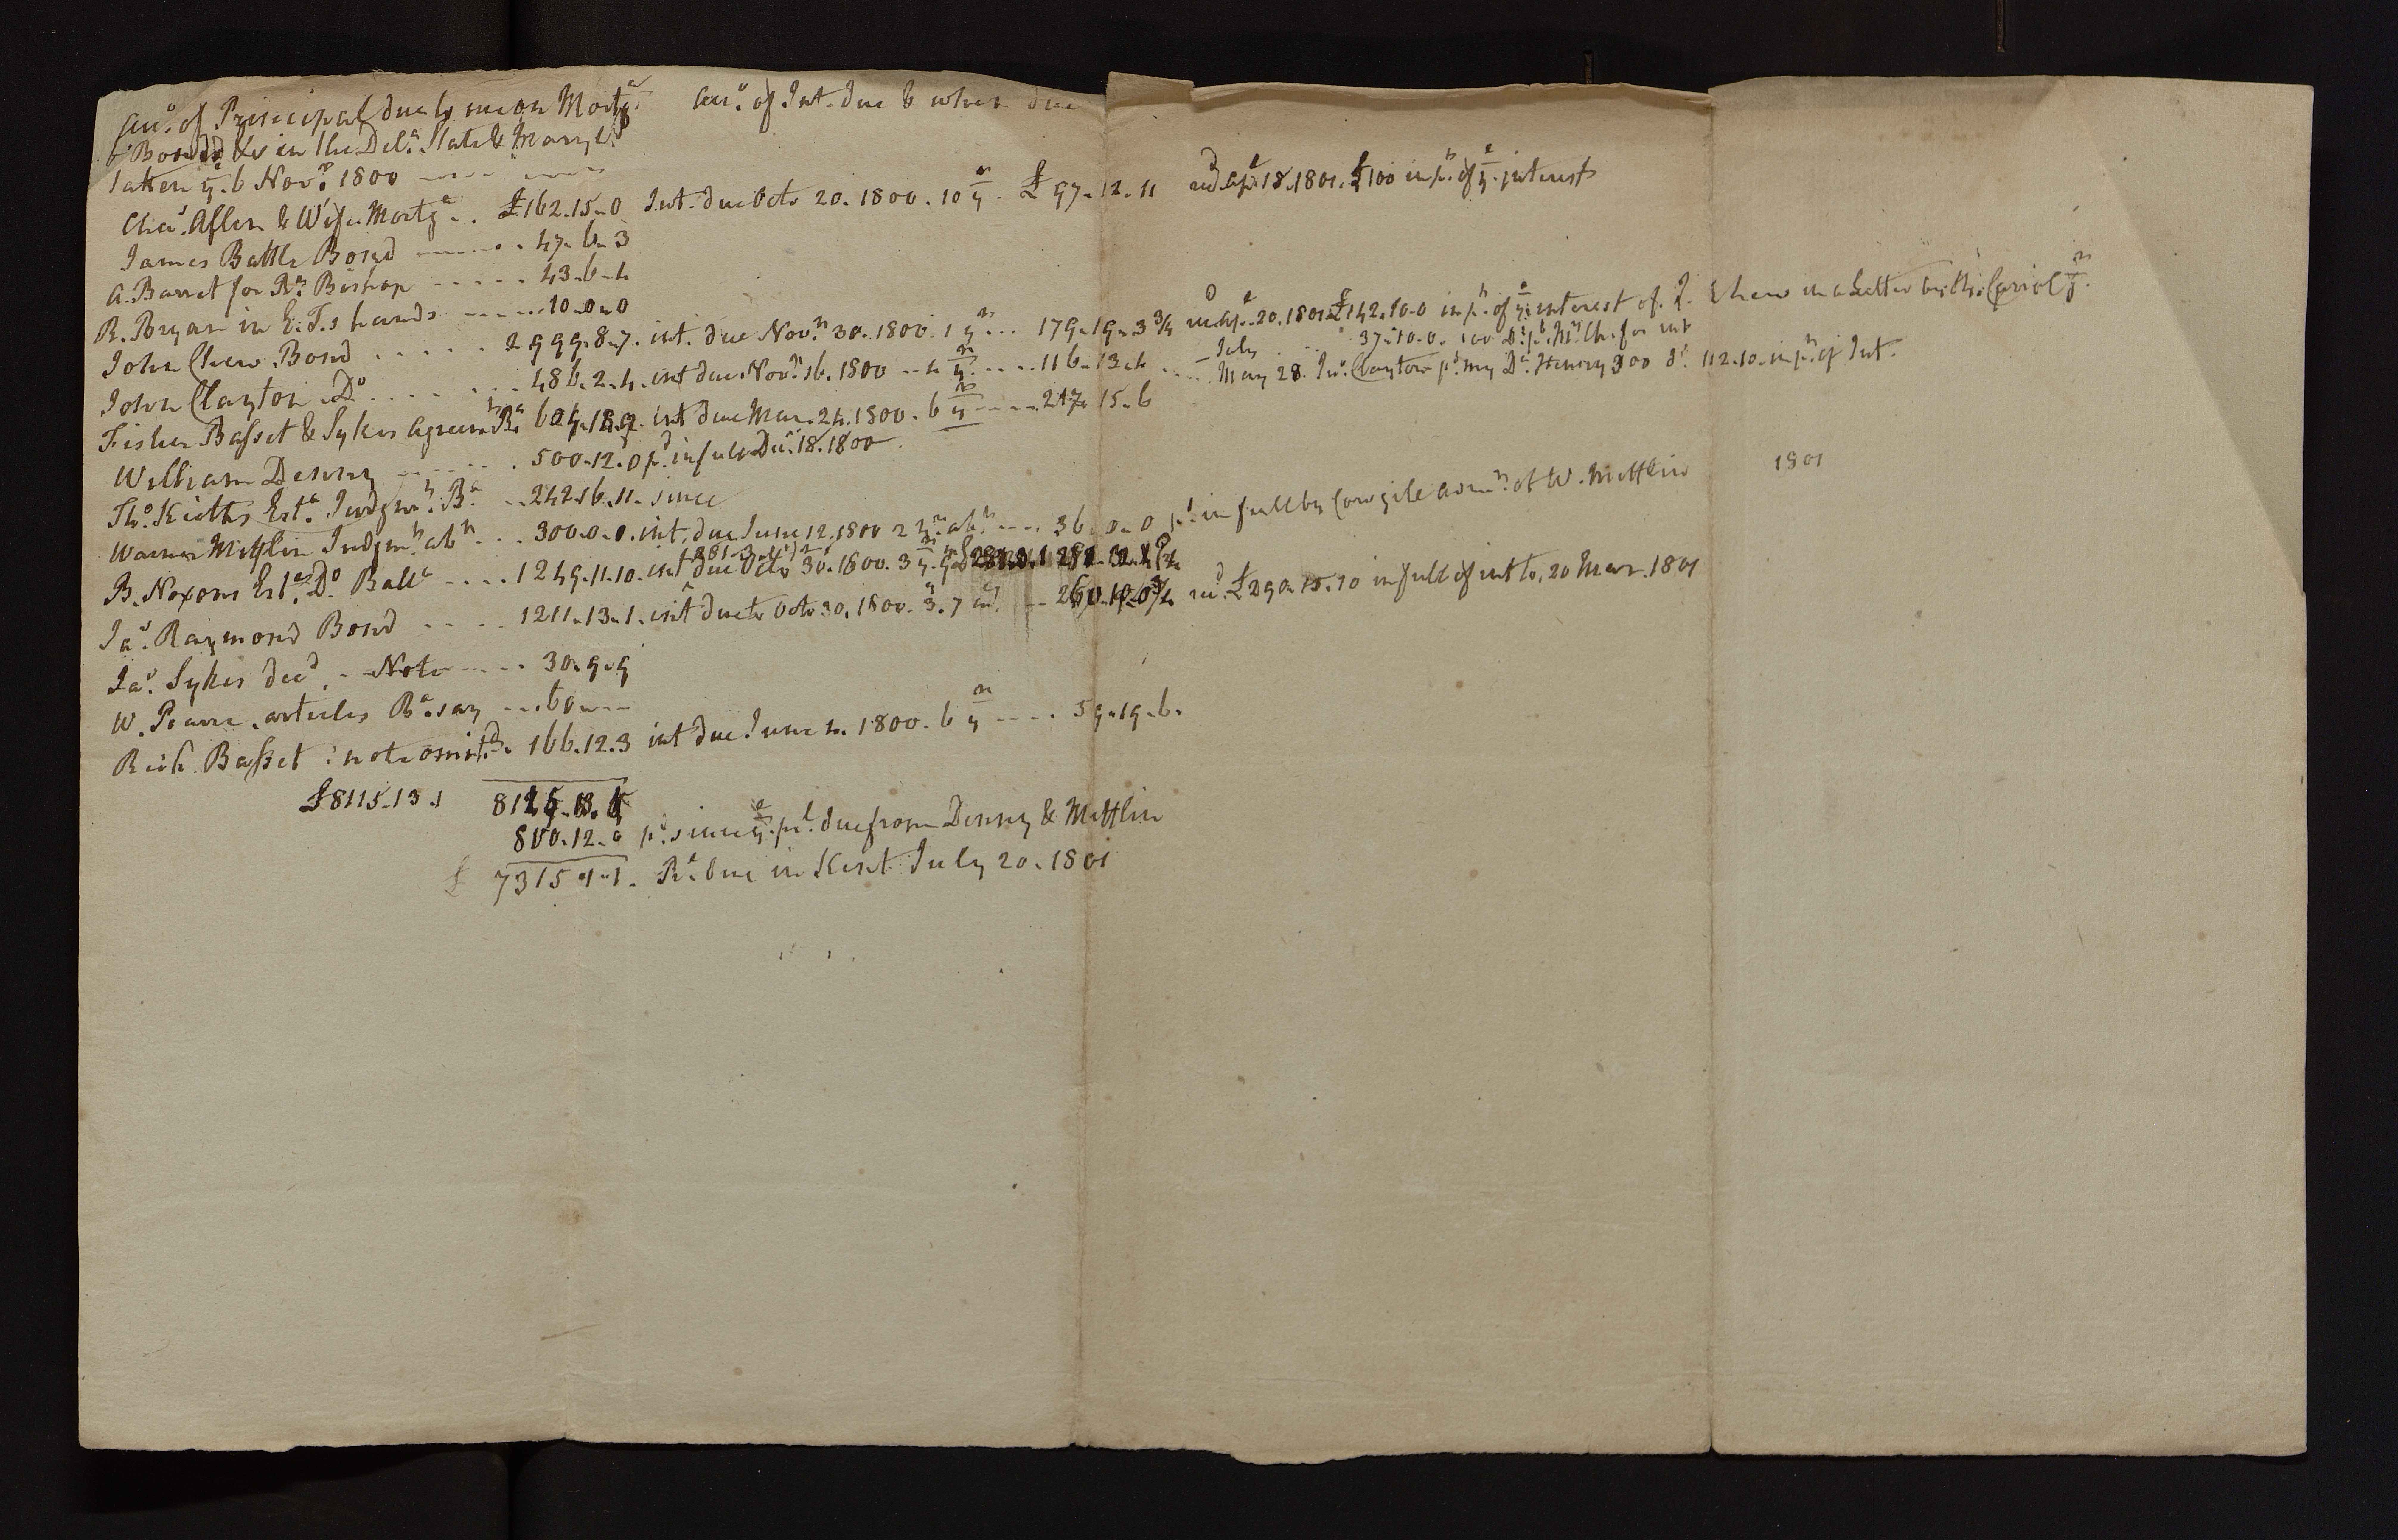 Acc.º of Principal due to me on Mortg.ᵉ Acc.º of Int. due & when due
& Bonds &c in the Del.ᵃ State & Maryl.ᵈ
taken yᵉ. 6 Nov.ʳ 1800
Cha.ˢ Allen & Wife Mortg.ᵉ .. £162.15.0 Int. due Octo 20. 1800. 10 yʳˢ. £97.12.11 recᵈ Ap.ˡ 18. 1801. £100 in p.ᵗ of yᵉ. interest
James Battle Bond ........ 47.6.3
A. Barret for Rᵗ. Bishop ..... 43.6.4
R. Bryan in E. T.s hands ...... 10.0.0
John Chew. Bond ..... 2999.8.7. int. due Nov.ʳ 30. 1800. 1 yʳ ... 179.19.3¾ recᵈ Ap.ˡ 20. 1801 £142.10.0 in p.ᵗ of yᵉ interest of J. Chew in a Letter by
July .... 37.10.0. 100 Dˢ. pᵈ. Mʳ Ch. for int
John Clayton .Dº. .... 486.2.4. int due. Nov.ʳ 16. 1800 -- 4 yʳˢ ..... 116.13.4 .... May 28. Jnº. Clayton pᵈ. my Dʳ. Henry 300 Dˢ. 112.10. in p.ᵗ of Int.
Fisher Basset & Sykes Agreemᵗ. int due Mar. 24. 1800. 6 yʳˢ ..... 217.15.6
William Denny ....... 500.12.0 pᵈ. in full Dec.ʳ 18. 1800
Thº. Keiths Est.ᵉ Judgmᵗ. Bᵉ .. 242.16.11. since
Warner Mifflin Judgm.ᵗ abᵗ ... 300.0.0. int. due June 12. 1800 2 yʳˢ abᵗ .... 36.0.0 pᵈ. in full by Cowgile Admʳ. of W. Mifflin 1801
B. Noxons Est.ᵉ Dº Ballᵉ .... 1249.11.10. int due Octo 30. 1800. 3 yʳˢ.
Ja.ˢ Raymond Bond ..... 1211.13.1. int due to Octo 30. 1800. 3. 7 recᵈ. £290.15.10 in full of int to. 20 Mar. 1801
Ja.ˢ Sykes decᵈ. - Note ..... 30.9.9
W. Pearce. articles Bᵉ. say ... 60
Rich Basset : note omitᵈ. 166.12.3 int due. June 4. 1800. 6 yʳˢ .... 59.19.6.
£8115.13.1
800.12.0 pᵈ. since yᵉ. prˡ. due from Denny & Mifflin
£ 7315.1.1. Pʳ. due in Kent July 20. 1801